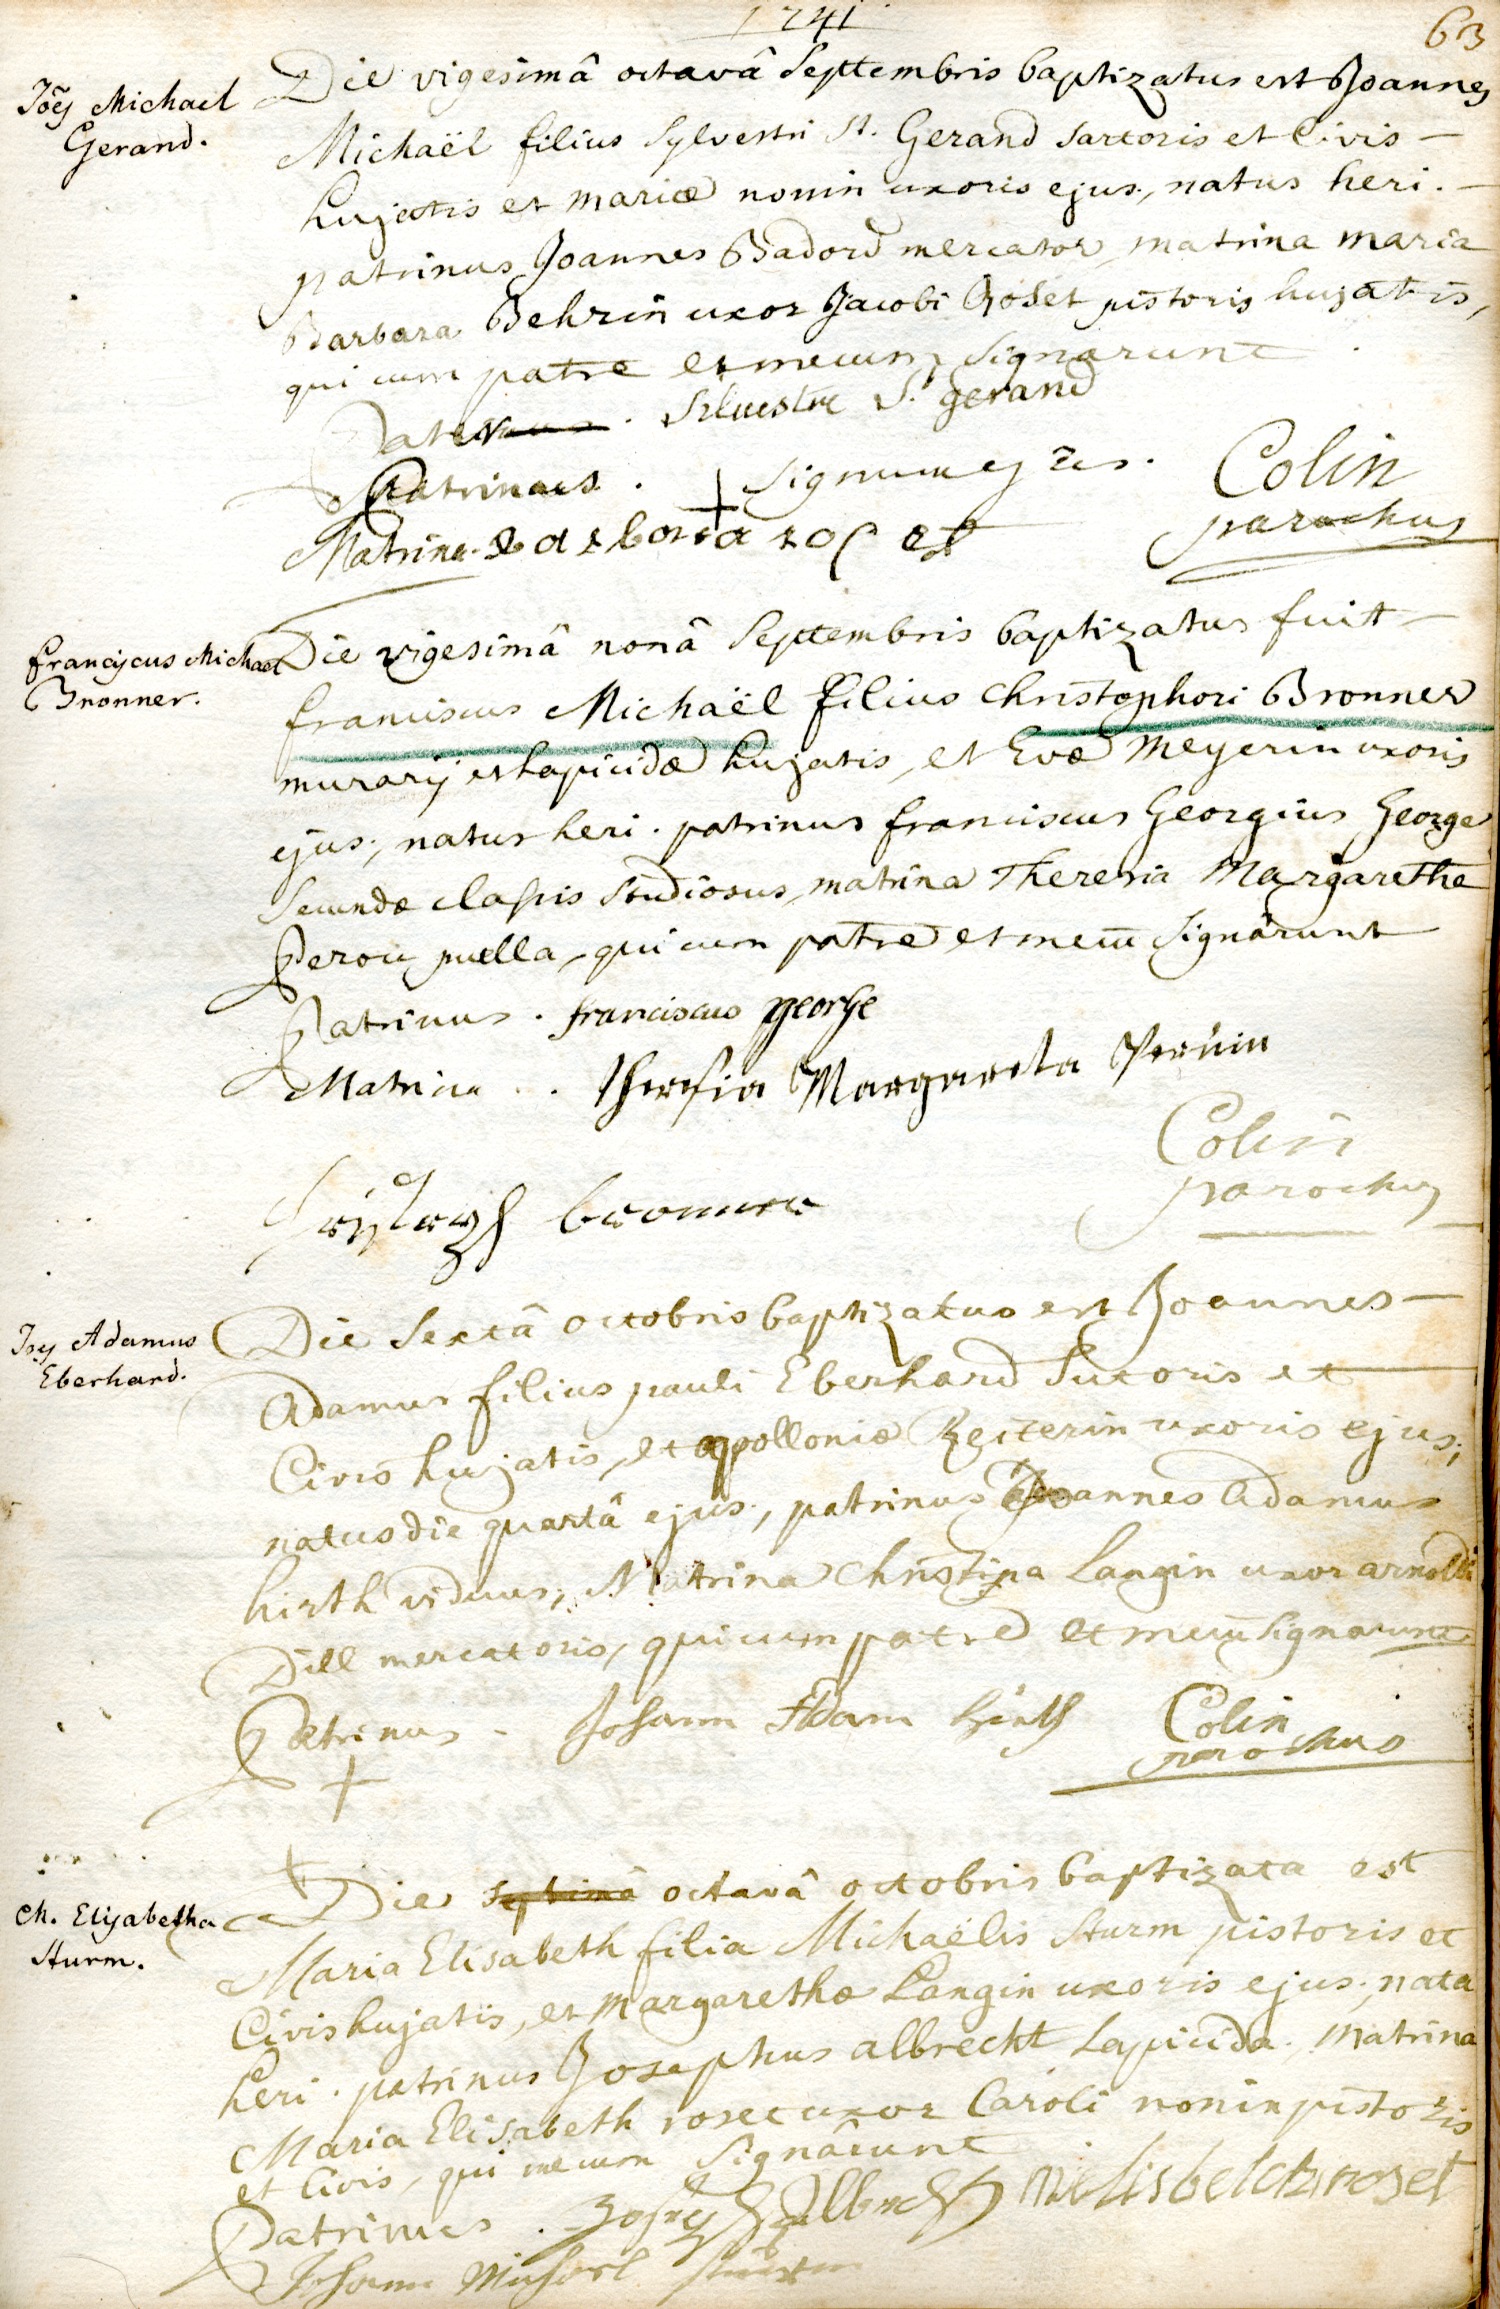 1741
63
Joes Michael
Gerand.
Die vigesimâ octavâ Septembris baptizatus est Joannes
Michaël filius Sylvestri St. Gerand sartoris et Civis
hujatis et mariæ nonin uxoris ejus, natus heri.
patrinus Joannes Badord mercator, matrina maria
Barbara Behrin uxor Jacobi Roset pistoris hujatis,
qui cum patre et mecum signarunt.
Pater . Silvestre St gerand
Patrinus . + signum ejus.
Matrina. barbara roset
Colin
parochus
franciscus Michael
Bronner.
Die vigesimâ nonâ Septembris baptizatus fuit
franciscus Michaël filius Christophori Bronner
murarij et lapicidæ hujatis, et Evæ Meyerin uxoris
ejus, natus heri. patrinus franciscus Georgius George
secundæ classis studiosus, matrina Theresia Margaretha
Perou puella, qui cum patre et mecū signârunt
Patrinus . franciscus george
Matrina . . theresia Margareta Peruin
Colin
parochus
Cristoph bronner
Joes Adamus
Eberhard.
Die Sextâ octobris baptizatus est Joannes
Adamus filius pauli Eberhard Sutoris et
Civis hujatis, et apolloniæ Zeiterin uxoris ejus,
natus die quartâ ejus, patrinus Joannes Adamus
hirth viduus, Matrina Christina Langin uxor arnoldi
Dill mercatoris, qui cum patre et mecū signarunt
Patrinus - Johann Adam Hirth
+
Colin
parochus
M. Elisabetha
Sturm.
+
Die septimâ octavâ octobris baptizata est
Maria Elisabeth filia Michaëlis Sturm pistoris et
Civis hujatis, et Margarethæ Langin uxoris ejus, nata
heri. patrinus Josephus albrecht Lapicida. Matrina
Maria Elisabeth roset uxor Caroli nonin pistoris
et Civis, qui mecum signârunt
Patrinus . Joseph Albrecht M elisbeta roset
Johann Michael Sturm